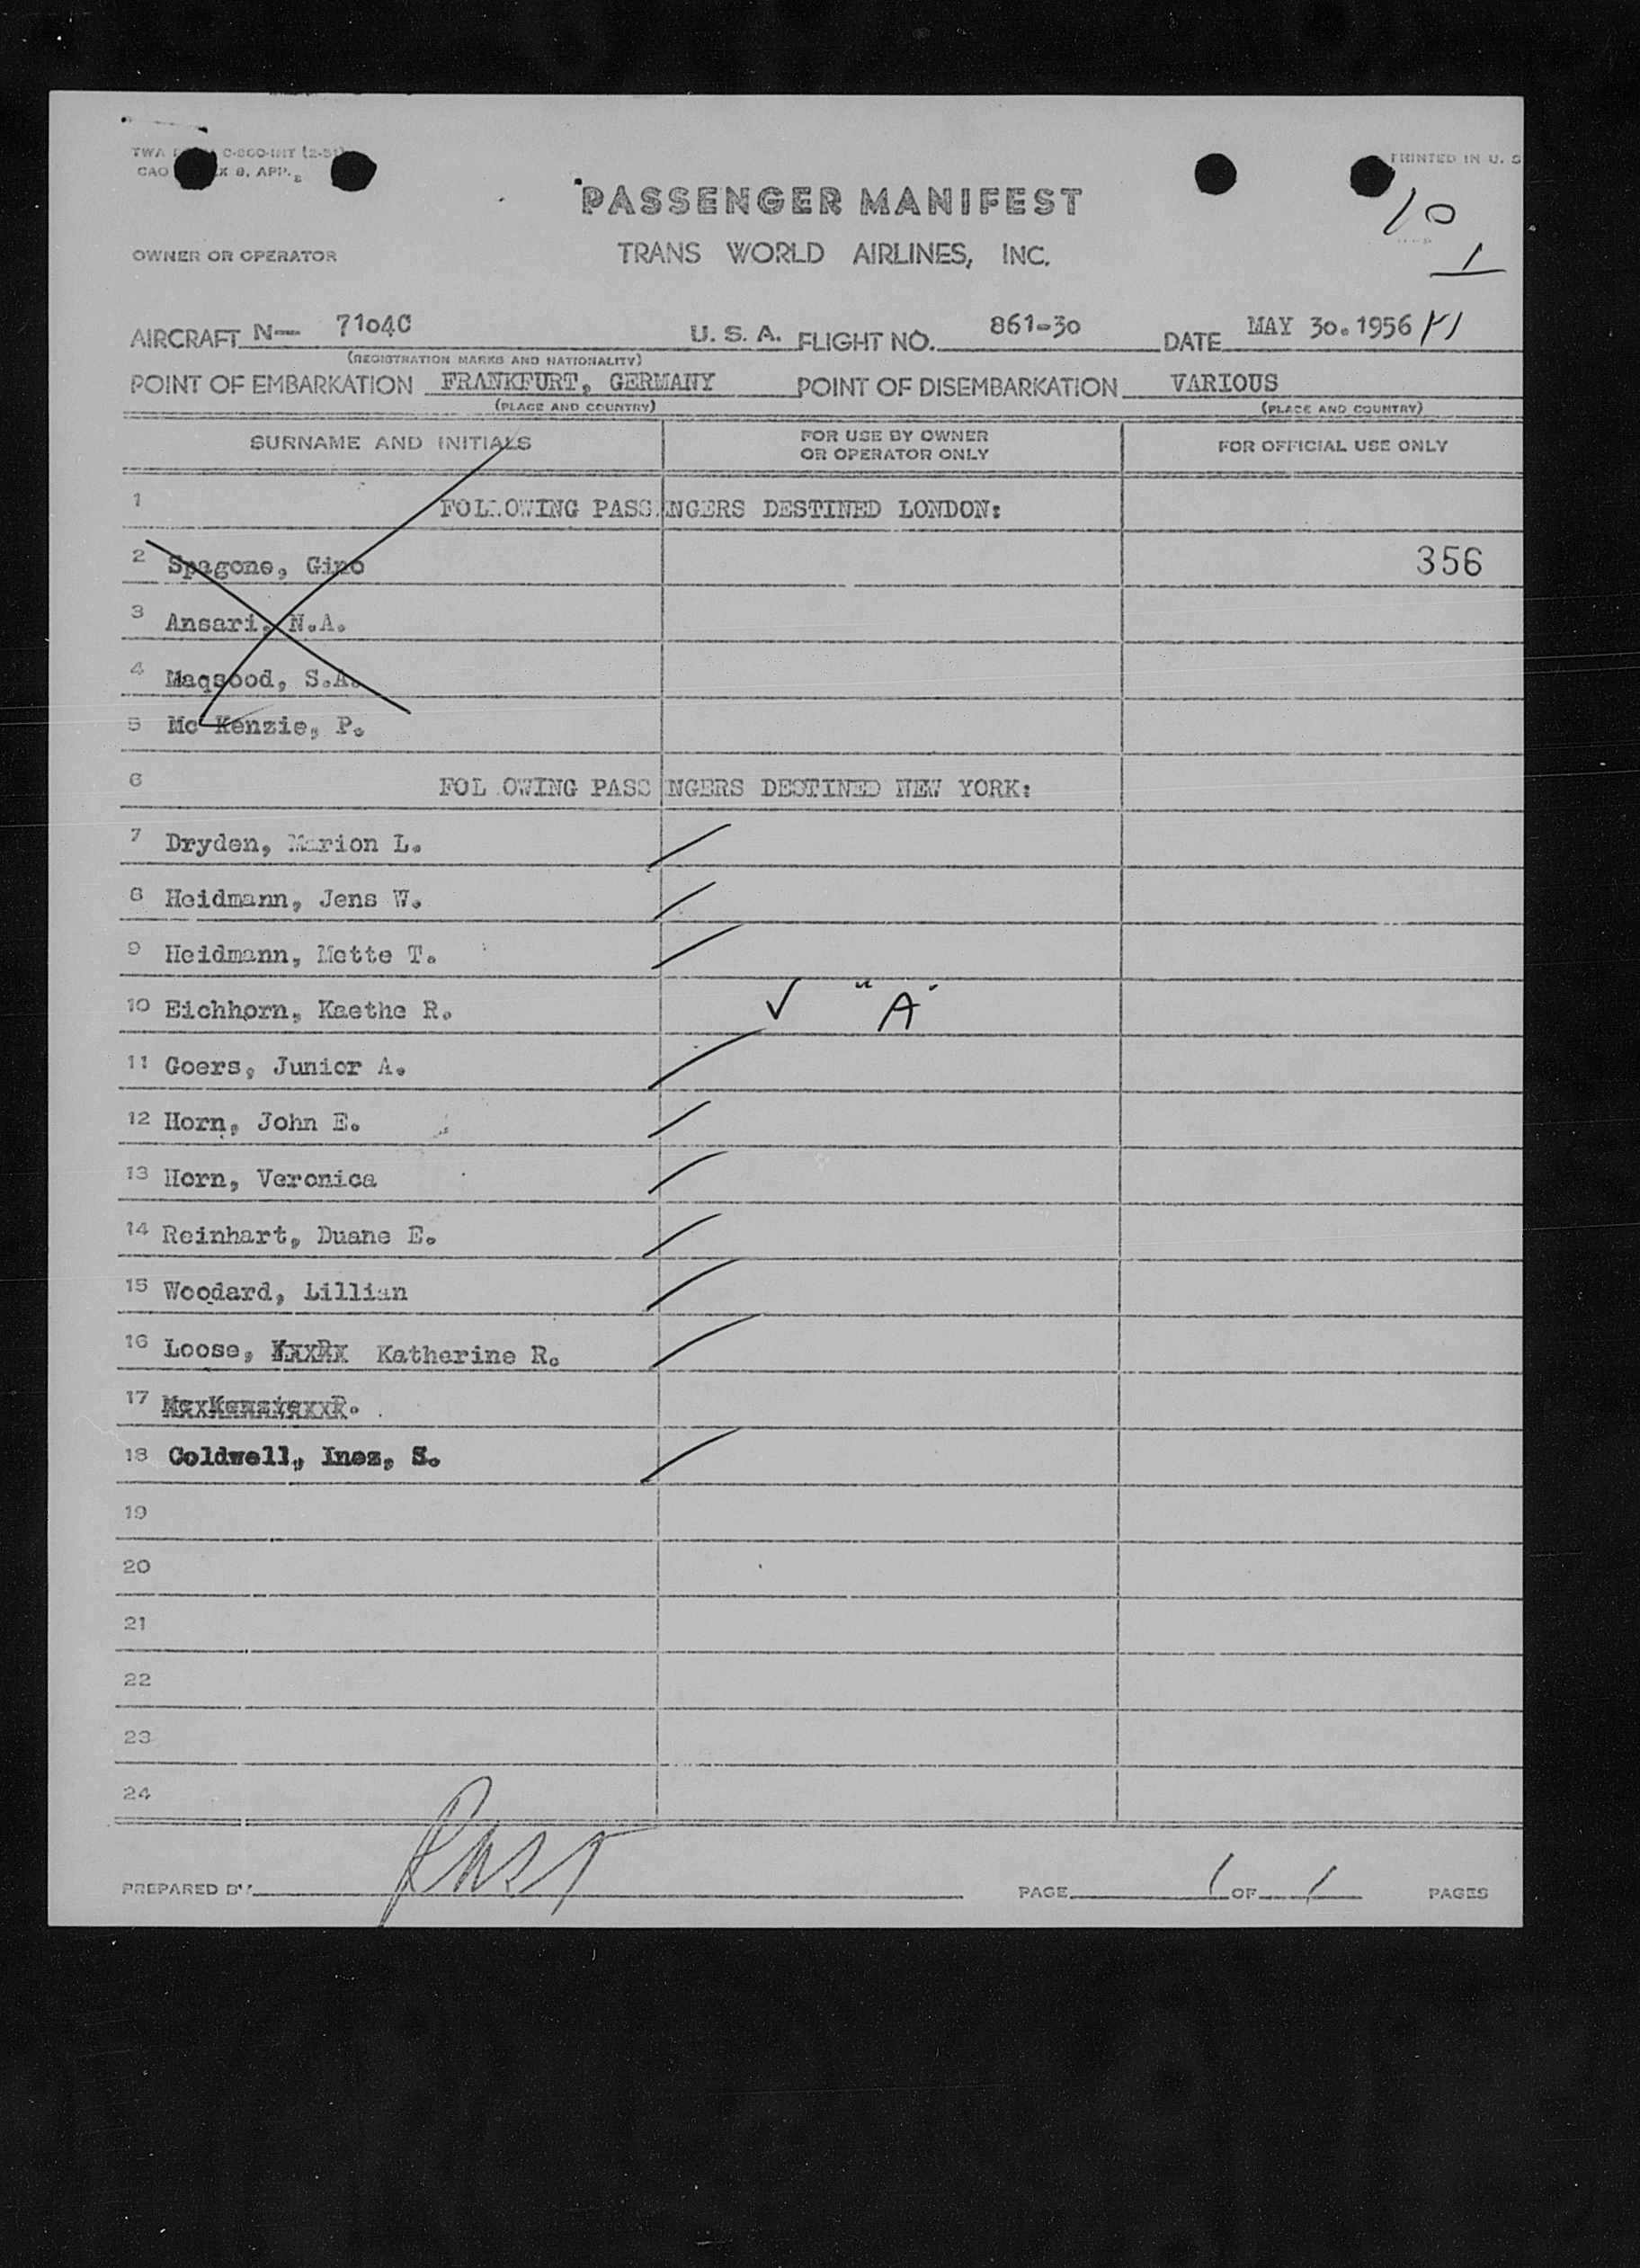 TWA C-800-INT (2-51)
CAO X 9, APP. 2
PRINTED IN U. S
PASSENGER MANIFEST
10
OWNER OR OPERATOR
TRANS WORLD AIRLINES, INC.
1
AIRCRAFT N— 7104C U. S. A. FLIGHT NO. 861-30 DATE MAY 30. 1956
(REGISTRATION MARKS AND NATIONALITY)
POINT OF EMBARKATION FRANKFURT, GERMANY POINT OF DISEMBARKATION VARIOUS
(PLACE AND COUNTRY) (PLACE AND COUNTRY)
SURNAME AND INITIALS FOR USE BY OWNER OR OPERATOR ONLY FOR OFFICIAL USE ONLY
1 FOLLOWING PASSENGERS DESTINED LONDON:
2 Spagone, Gino 356
3 Ansari, N.A.
4 Maqsood, S.A.
5 Mc Kenzie, P.
6 FOL OWING PASS NGERS DESTINED NEW YORK:
7 Dryden, Marion L.
8 Heidmann, Jens W.
9 Heidmann, Mette T.
10 Eichhorn, Kaethe R. ✓ "A"
11 Goers, Junior A.
12 Horn, John E.
13 Horn, Veronica
14 Reinhart, Duane E.
15 Woodard, Lillian
16 Loose, Katherine R.
17
18 Coldwell, Inez, S.
19
20
21
22
23
24
PREPARED BY PAGE 1 OF 1 PAGES